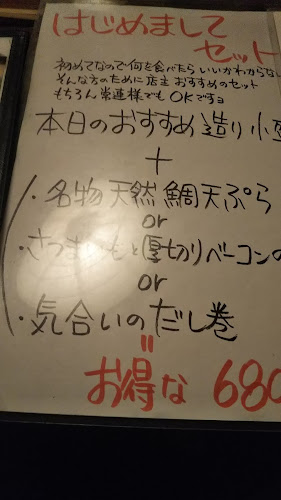 はじめまして
セット
初めてなので何を食べたらいいかわからない
そんな方のために店主おすすめのセット
もちろん常連様でもOKですョ
本日のおすすめ造り小
+
・名物天然鯛天ぷら
or
・さつまいもと厚切りベーコンの
or
・気合いのだし巻
=
お得な 680